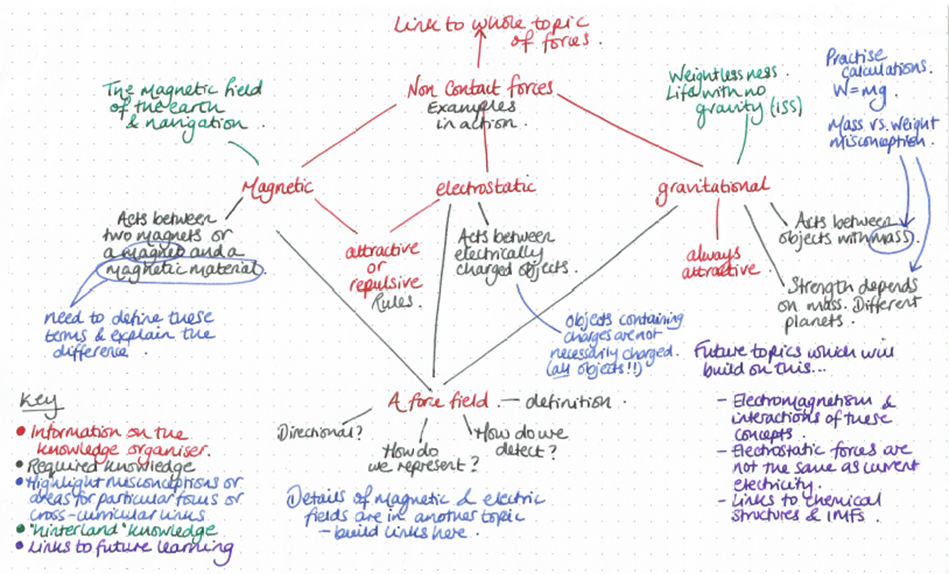 Link to whole topic
of forces.
Non Contact forces
Examples
in action.
The Magnetic field
of the earth
& navigation.
Weightlessness.
Life with no
gravity (ISS)
Practise
calculations.
W=mg.
Mass vs. Weight
misconception.
Magnetic
electrostatic
gravitational
Acts between
two magnets or
a magnet and a
magnetic material.
attractive
or
repulsive
Rules.
Acts between
electrically
charged objects.
always
attractive.
Acts between
objects with mass.
Strength depends
on mass. Different
planets.
need to define these
terms & explain the
difference.
Objects containing
charges are not
necessarily charged.
(all objects!!)
A force field. — definition.
Directional?
How do
we represent?
How do we
detect?
Details of magnetic & electric
fields are in another topic
- build links here.
Future topics which will
build on this...
- Electromagnetism &
interactions of these
concepts.
- Electrostatic forces are
not the same as current
electricity.
- Links to chemical
structures & IMFs.
Key
• Information on the
knowledge organiser.
• Required knowledge
• Highlight misconceptions or
areas for particular focus or
cross-curricular links
• 'hinterland' knowledge
• Links to future learning